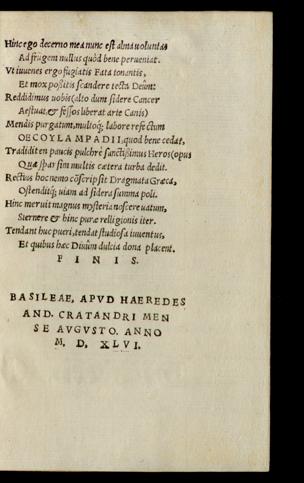 Hinc ego decerno mea nunc est alma voluntas
Ad frugem nullus quòd bene perueniat.
Vt iuuenes ergo fugiatis Fata tonantis,
Et mox positis scandere tecta Deûm:
Reddidimus uobis (alto dum sidere Cancer
Aestuat, & fessos liberat arte Canis)
Mendis purgatum, multoq; labore refectum
OECOYLAMPADII, quod bene cedat, (opus
Tradidit en paucis pulchrè sanctissimus Heros
Quæ spar sim multis cætera turba dedit.
Rectius hoc nemo cõscripsit Dragmata Græca,
Ostenditq; uiam ad sidera summa poli.
Hinc meruit magnus mysteria noscere uatum,
Sternere & hinc puræ relligionis iter.
Tendant huc pueri, tendat studiosa iuuentus,
Et quibus hæc Diuûm dulcia dona placent.
F I N I S.
BASILEAE, APVD HAEREDES
AND. CRATANDRI MEN
SE AVGVSTO. ANNO
M. D. XLVI.